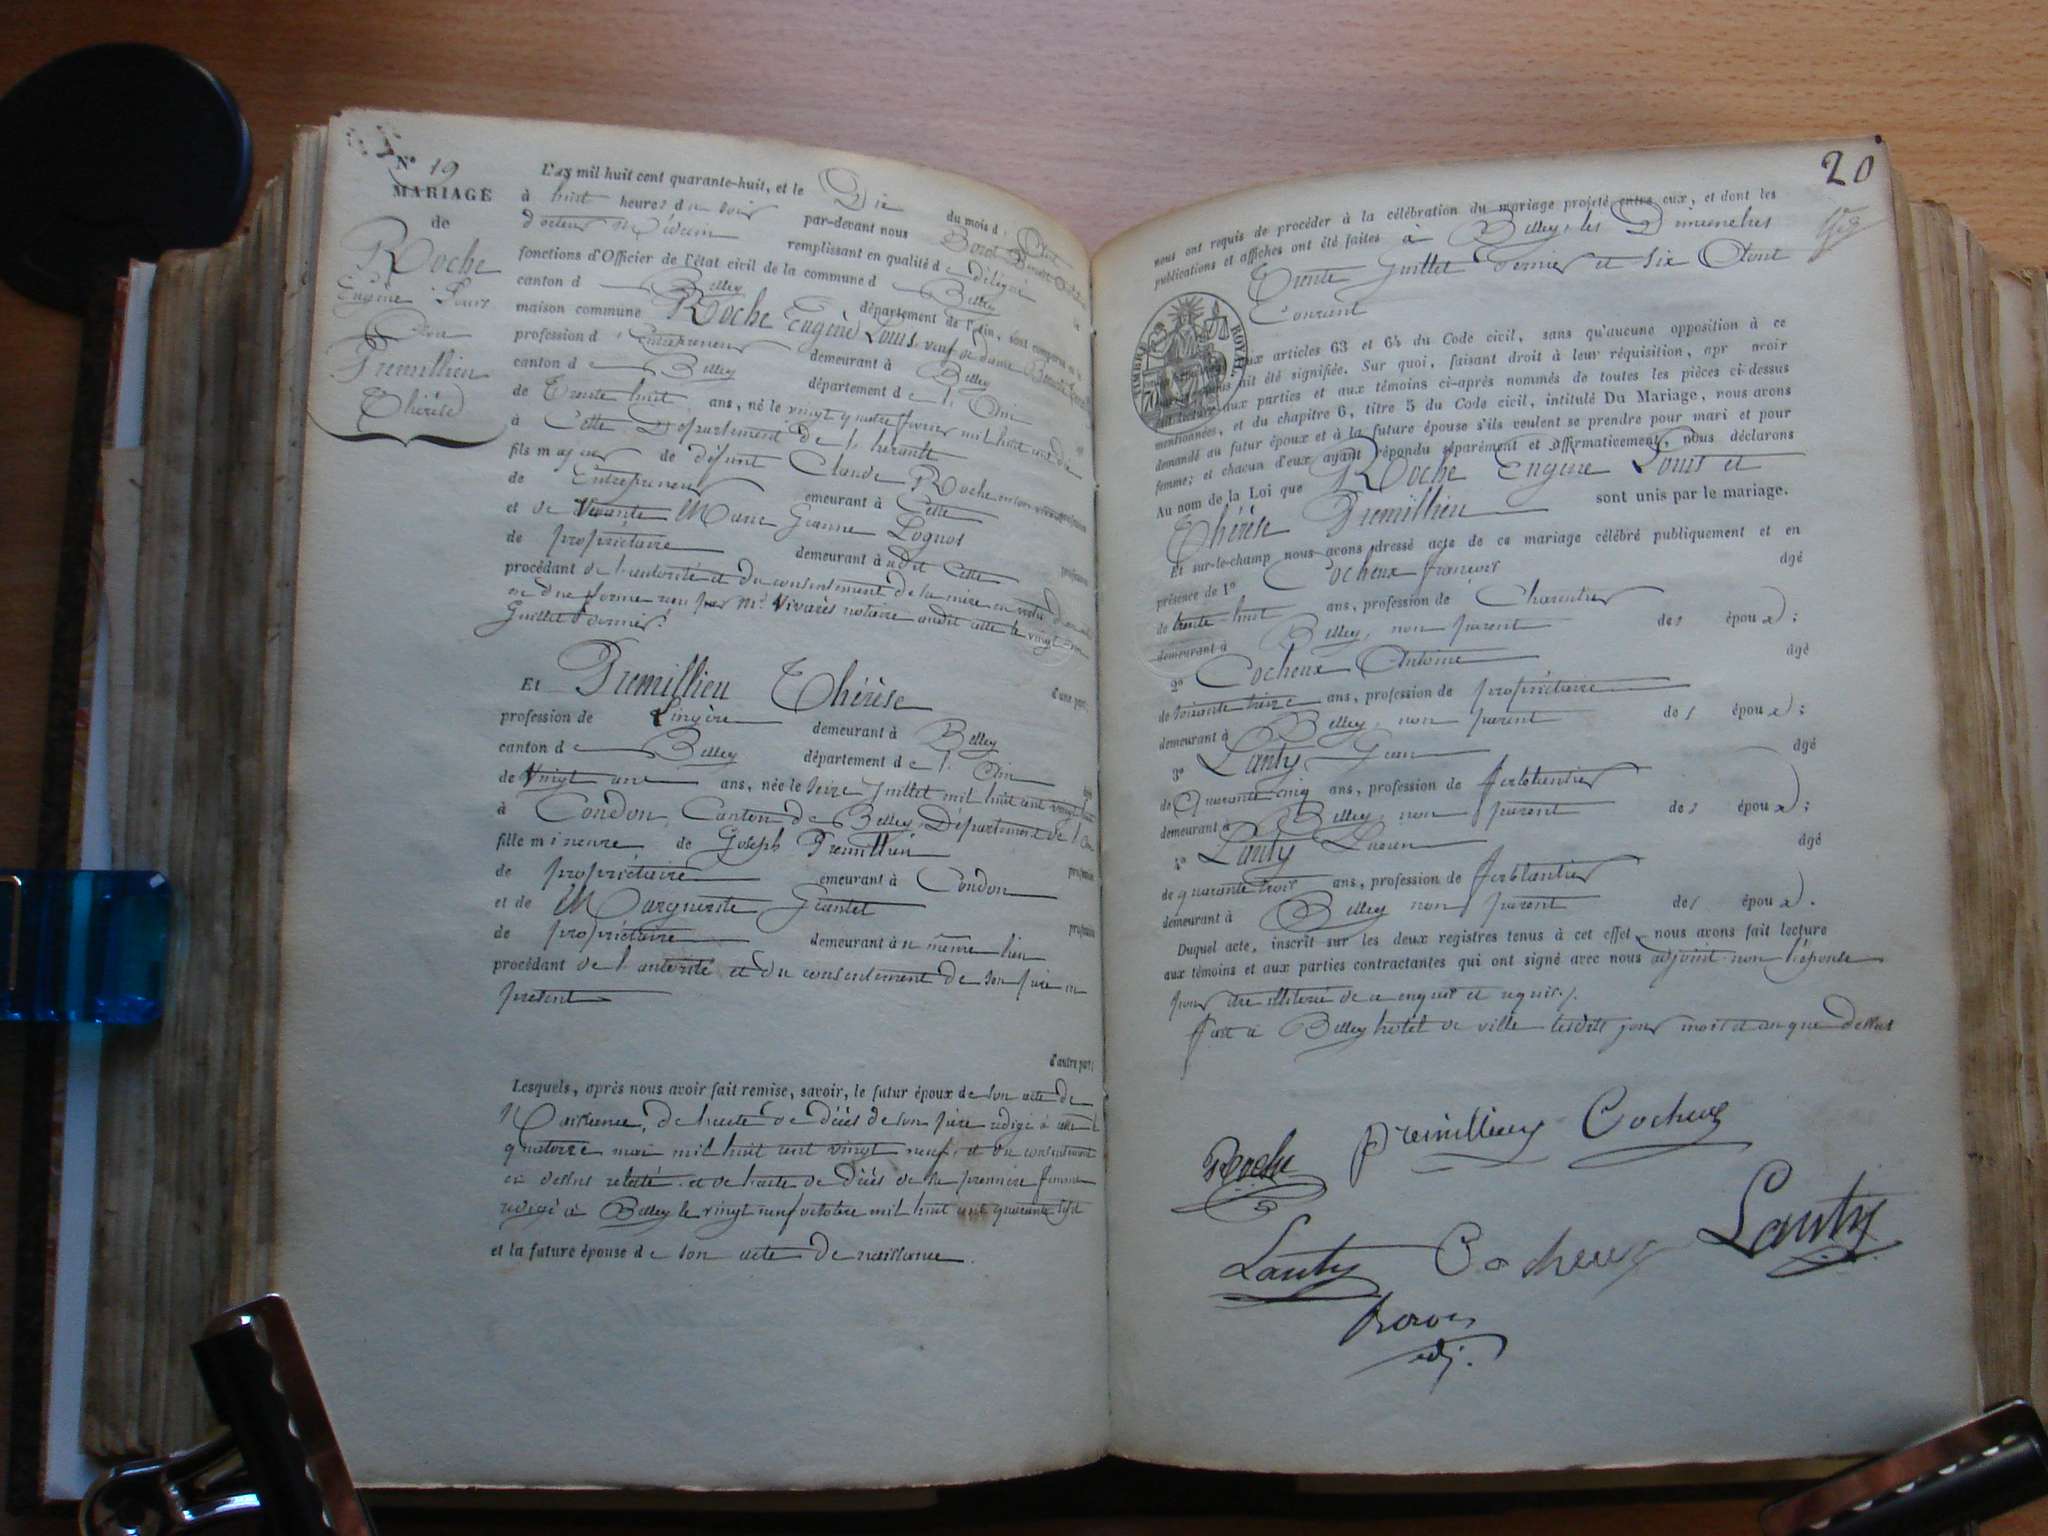 N° 19
MARIAGE
de
Roche
Eugène Louis
Avec
Premillieu
Thérèse
L'an mil huit cent quarante-huit, et le Dix du mois d'Août
à huit heures du soir par-devant nous
docteur Médecin remplissant en qualité de délégué
fonctions d'Officier de l'état civil de la commune de Belley
canton de Belley département de l'Ain, sont comparus en la
maison commune Roche Eugène Louis veuf de dame
profession d'Entrepreneur demeurant à Belley
canton de Belley département de l'Ain
de Trente huit ans, né le vingt quatre février mil huit cent dix
à Cette Département de l'herault
fils majeur de défunt Claude Roche en son vivant profession
de Entrepreneur demeurant à Cette
et de vivante Marie Jeanne Lognos
de propriétaire demeurant à audit Cette profession
procédant de l'autorité et du consentement de la mère en vertu d'un acte
en due forme reçu par Me Vivarès notaire audit Cette le vingt
Juillet dernier.
d'une part;
Et Premillieu Thérèse
profession de Lingère demeurant à Belley
canton de Belley département de l'Ain
de Vingt ans, née le seize Juillet mil huit cent vingt huit
à Condon, Canton de Belley, Département de l'Ain
fille mineure de Joseph Premillieu
de propriétaire demeurant à Condon profession
et de Marguerite Jeantet
de propriétaire demeurant à u même lieu profession
procédant de l'autorité et du consentement de son père ici
présent
d'autre part;
Lesquels, après nous avoir fait remise, savoir, le futur époux de son acte de
Naissance, de l'acte de décès de son père rédigé à Cette le
quatorze mai mil huit cent vingt neuf, et du consentement
ci dessus relaté et de l'acte de décès de sa première femme
rédigé à Belley le vingt neuf octobre mil huit cent quarante sept
et la future épouse de son acte de naissance.
20
nous ont requis de procéder à la célébration du mariage projeté entre eux, et dont les
publications et affiches ont été faites à Belley, les Dimanches
Trente Juillet dernier et six Août
Courant
TIMBRE ROYAL
aux articles 63 et 64 du Code civil, sans qu'aucune opposition à ce
ait été signifiée. Sur quoi, faisant droit à leur réquisition, apr avoir
fait lecture aux parties et aux témoins ci-après nommés de toutes les pièces ci-dessus
mentionnées, et du chapitre 6, titre 5 du Code civil, intitulé Du Mariage, nous avons
demandé au futur époux et à la future épouse s'ils veulent se prendre pour mari et pour
femme; et chacun d'eux ayant répondu séparément et affirmativement, nous déclarons
Au nom de la Loi que Roche Eugène Louis et
Thérèse Premillieu sont unis par le mariage.
Et sur-le-champ nous avons dressé acte de ce mariage célébré publiquement et en
présence de 1° Cocheux françois âgé
de trente huit ans, profession de Charentier
demeurant à Belley, non parent des époux;
2° Cocheux Antoine âgé
de soixante treize ans, profession de propriétaire
demeurant à Belley, non parent des époux;
3° Lanty Jean âgé
de Quarante cinq ans, profession de ferblantier
demeurant à Belley, non parent des époux;
4° Lanty Lucien âgé
de quarante trois ans, profession de ferblantier
demeurant à Belley non parent des époux.
Duquel acte, inscrit sur les deux registres tenus à cet effet, nous avons fait lecture
aux témoins et aux parties contractantes qui ont signé avec nous adjoint non l'épouse
pour être illiterée de ce enquise et requise.
fait à Belley hôtel de ville lesdits jour mois et an que dessus
Roche
premillieux
Cocheux
Lanty
Cocheux
Lanty
adj.